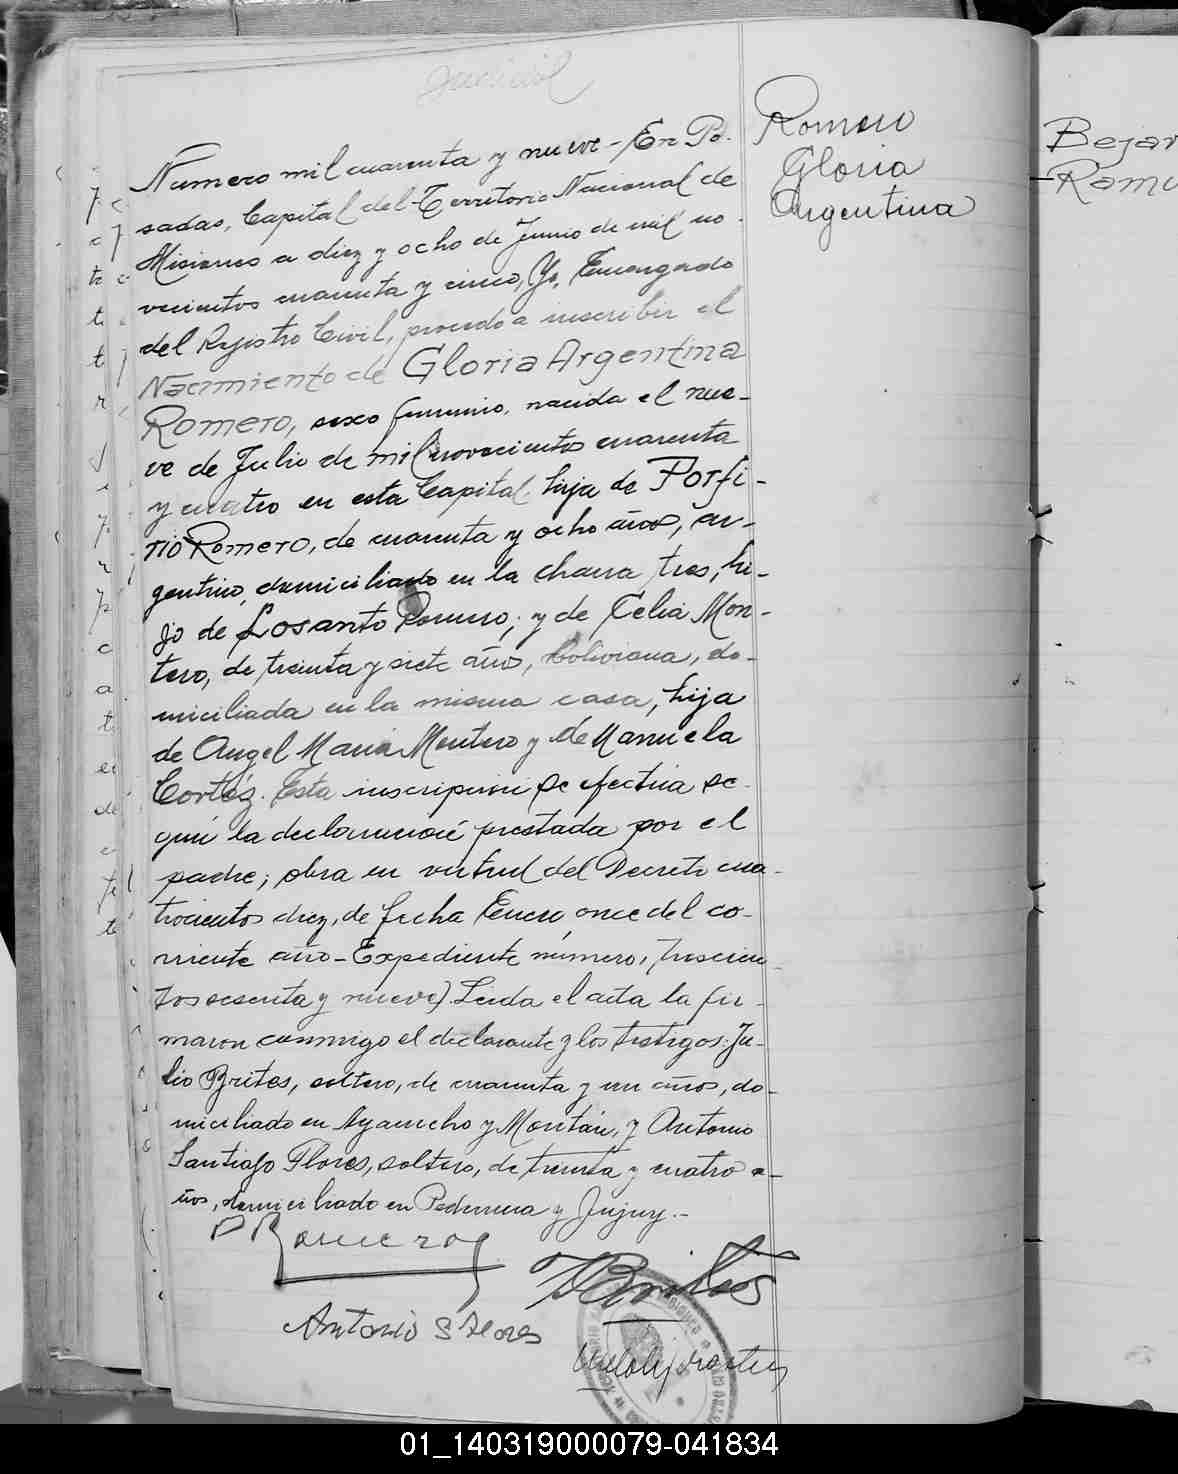 Judicial
Numero mil cuarenta y nueve - En Po-
sadas, Capital del Territorio Nacional de
Misiones a diez y ocho de Junio de mil no-
vecientos cuarenta y cinco, Yo, Encargado
del Rejistro Civil, procedo a inscribir el
Nacimiento de Gloria Argentina
Romero, sexo femenino, nacida el nue-
ve de Julio de mil novecientos cuarenta
y cuatro en esta Capital, hija de Porfi-
rio Romero, de cuarenta y ocho años, ar-
gentino, domiciliado en la chacra tres, hi-
jo de Losanto Romero; y de Celia Mon-
tero, de treinta y siete años, boliviana, do-
miciliada en la misma casa, hija
de Angel Maria Montero y de Manuela
Cortéz. Esta inscripcion se efectúa se-
gún la declaración prestada por el
padre; obra en virtud del Decreto cua-
trocientos diez, de fecha Enero once del co-
rriente año - Expediente número, trescien-
tos sesenta y nueve) Leida el acta la fir-
maron conmigo el declarante y los testigos: Ju-
lio Brites, soltero, de cuarenta y un años, do-
miciliado en Ayacucho y Montán, y Antonio
Santiago Flores, soltero, de treinta y cuatro a-
ños, domiciliado en Pedernera y Jujuy.-
P Romero
J Brites
Antonio S Flores
Romero
Gloria
Argentina
Bejar
Rami
01_140319000079-041834